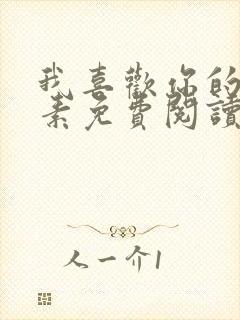 我喜歡你的
素免費閱讀
人一介1